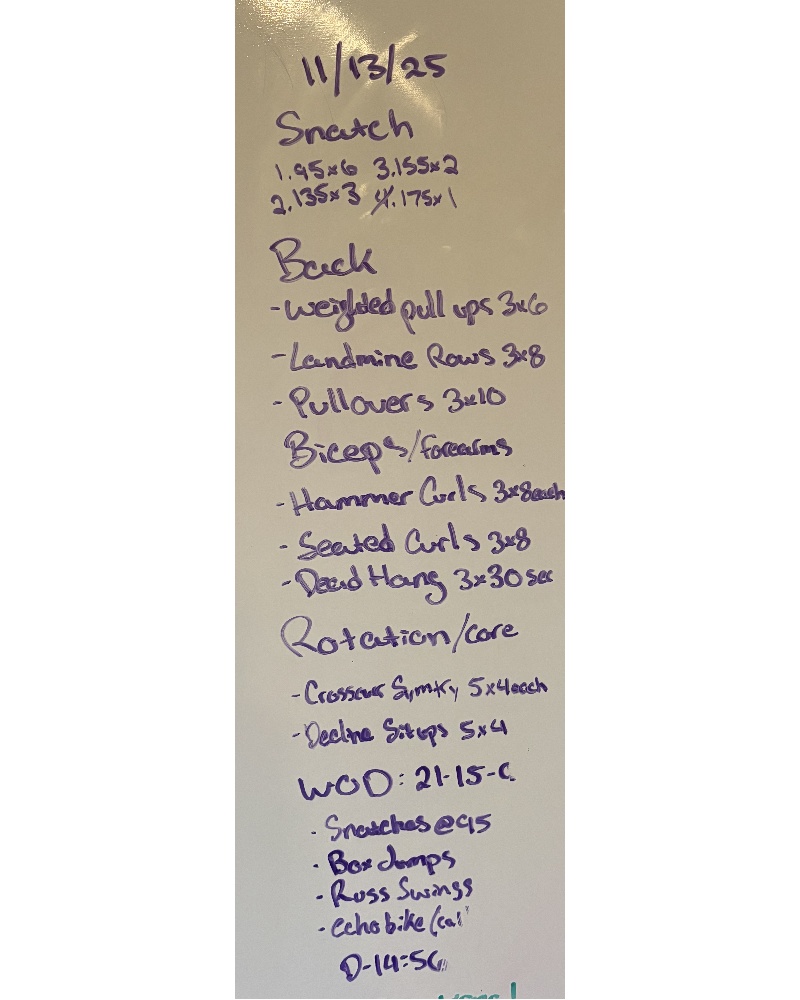 11/13/25
Snatch
1.95x6 3.155x2
2.135x3 4.175x1
Back
-weighted pull ups 3x6
-Landmine Rows 3x8
-Pullovers 3x10
Biceps/forearms
-Hammer Curls 3x8each
-Seated Curls 3x8
-Dead Hang 3x30sec
Rotation/core
-Crossover Symtry 5x4each
-Decline Situps 5x4
WOD: 21-15-
· Snatches@95
· Box Jumps
· Russ Swings
· echo bike/cal
D-14:56